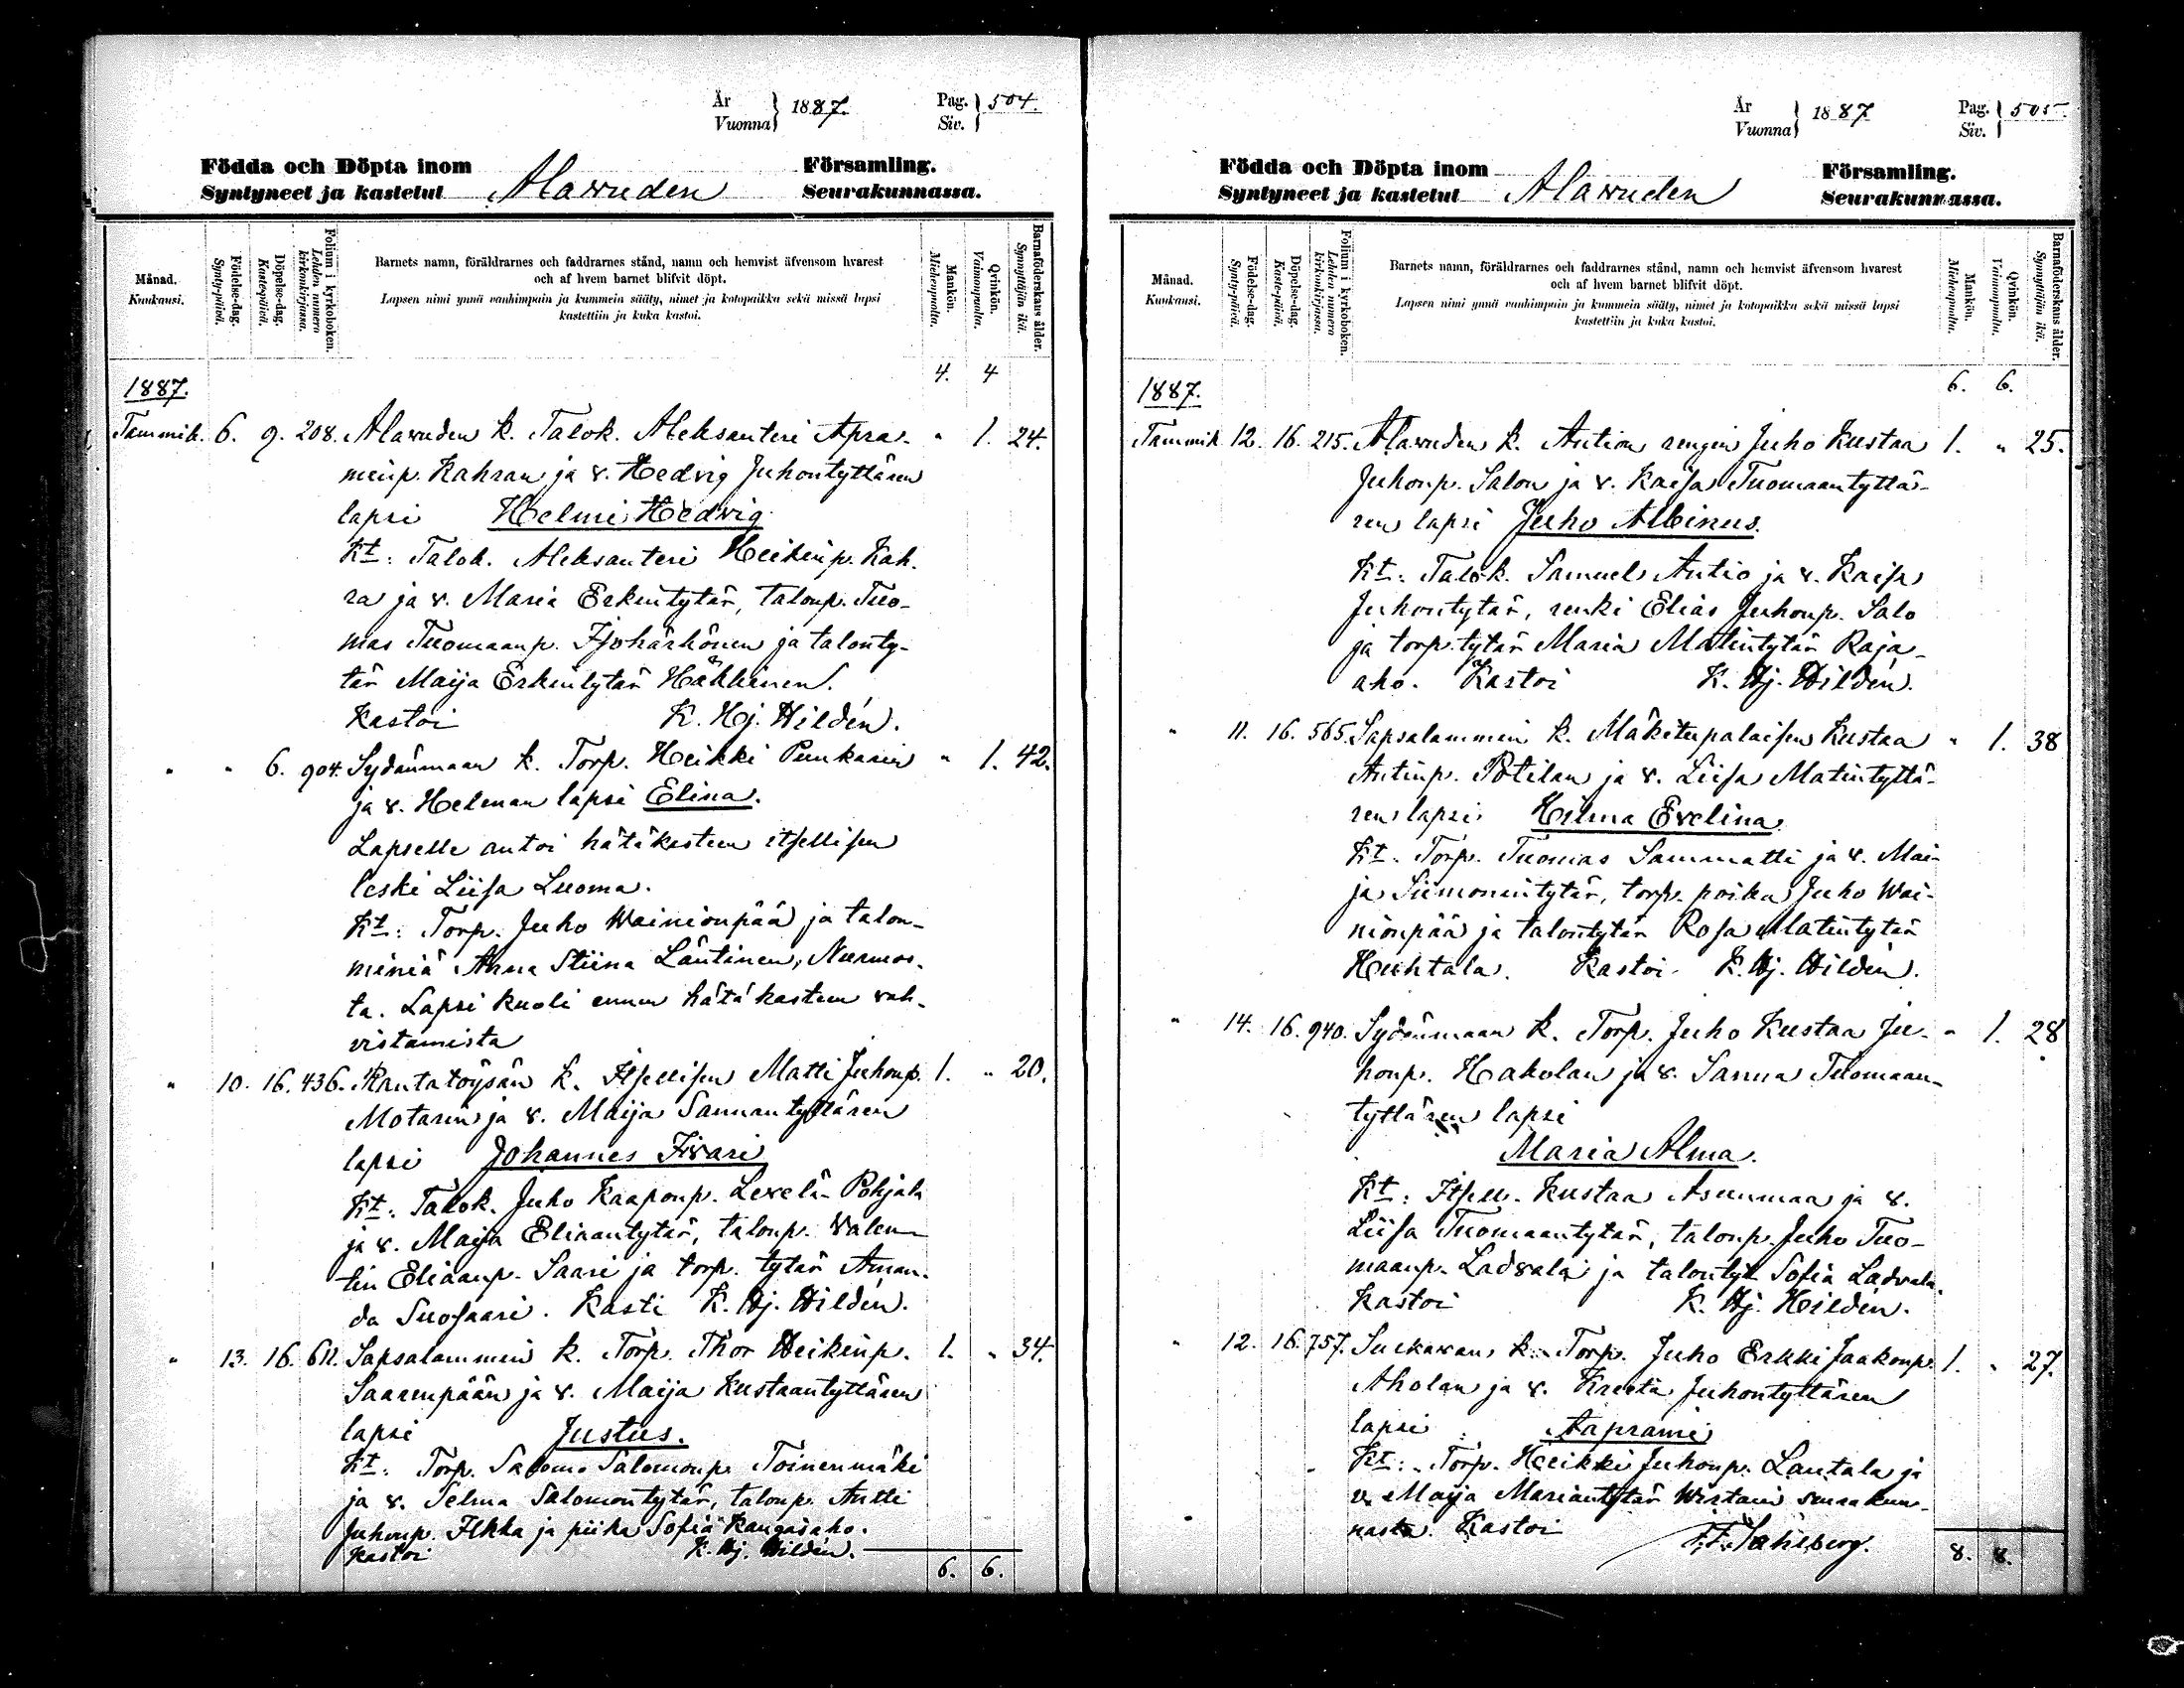 År
Vuonna } 1887. Pag.
Siv. } 504.
Födda och Döpta inom Församling.
Syntyneet ja kastetut Alavuden Seurakunnassa.
Månad.
Kuukausi.
Födelse-dag.
Synty-päivä.
Döpelse-dag.
Kaste-päivä.
Folium i kyrkoboken.
Lehden numero
kirkonkirjassa.
Barnets namn, föräldrarnes och faddrarnes stånd, namn och hemvist äfvensom hvarest
och af hvem barnet blifvit döpt.
Lapsen nimi ynnä vanhimpain ja kummein sääty, nimet ja kotopaikka sekä missä lapsi
kastettiin ja kuka kastoi.
Mankön.
Miehenpuolta.
Qvinkön.
Vaimonpuolta.
Barnaföderskans ålder.
Synnyttäjän ikä.
1887. 4. 4
Tammik. 6. 9. 208. Alavuden k. Talok. Aleksanteri Apra- " 1. 24.
minp. Kahran ja v. Hedvig Juhontyttären
lapsi Helmi Hedvig
Kt: Talok. Aleksanteri Heikinp. Kah-
ra ja v. Maria Erkintytär, talonp. Tuo-
mas Tuomaanp. Isohärkönen ja talonty-
tär Maija Erkintytär Häkkinen.
Kastoi K. Hj. Hildén.
" " 6. 904. Sydänmaan k. Torp. Heikki Punkarin " 1. 42.
ja v. Helenan lapsi Elina.
Lapselle antoi hätäkasteen itsellisen
leski Liisa Luoma.
Kt: Torp. Juho Wainionpää ja talon-
miniä Anna Stiina Läntinen, Nurmos-
ta. Lapsi kuoli ennen hätäkasteen vah-
vistamista
" 10. 16. 436. Rantatöysän k. Itsellisen Matti Juhonp. 1. " 20.
Motarin ja v. Maija Sannantyttären
lapsi Johannes Iivari
Kt: Talok. Juho Kaaponp. Levelä-Pohjala
ja v. Maija Eliaantytär, talonp. Valen-
tin Eliaanp. Saari ja torp. tytär Aman-
da Suosaari. Kasti K. Hj. Hildén.
" 13. 16. 611. Sapsalammin k. Torp. Thor Heikinp. 1. " 34.
Saarenpään ja v. Maija Kustaantyttären
lapsi Justus.
Kt: Torp. Salomo Salomonp. Toinenmäki
ja v. Selma Salomontytär, talonp. Antti
Juhonp. Ilkka ja piika Sofia Kangasaho.
Kastoi K. Hj. Hildén.
6. 6.
År
Vuonna } 1887 Pag.
Siv. } 505.
Födda och Döpta inom Församling.
Syntyneet ja kastetut Alavuden Seurakunnassa.
Månad.
Kuukausi.
Födelse-dag.
Synty-päivä.
Döpelse-dag.
Kaste-päivä.
Folium i kyrkoboken.
Lehden numero
kirkonkirjassa.
Barnets namn, föräldrarnes och faddrarnes stånd, namn och hemvist äfvensom hvarest
och af hvem barnet blifvit döpt.
Lapsen nimi ynnä vanhimpain ja kummein sääty, nimet ja kotopaikka sekä missä lapsi
kastettiin ja kuka kastoi.
Mankön.
Miehenpuolta.
Qvinkön.
Vaimonpuolta.
Barnaföderskans ålder.
Synnyttäjän ikä.
1887. 6. 6.
Tammik 12. 16. 215. Alavuden k. Antion rengin Juho Kustaa 1. " 25.
Juhonp. Salon ja v. Kaisa Tuomaantyttä-
ren lapsi Juho Albinus.
Kt: Talok. Samuel Antio ja v. Kaisa
Juhontytär, renki Elias Juhonp. Salo
ja torp. tytär Maria Matintytär Raja-
aho. Kastoi K. Hj. Hildén.
" 11. 16. 565. Sapsalammin k. Mäkitupalaisen Kustaa " 1. 38
Antinp. Potilan ja v. Liisa Matintyttä-
ren lapsi Hilma Evelina
Kt: Torp. Tuomas Sammatti ja v. Mai-
ja Siimonintytär, torp. poika Juho Wai-
nionpää ja talontytär Rosa Matintytär
Huhtala. Kastoi K. Hj. Hildén.
" 14. 16. 940. Sydänmaan k. Torp. Juho Kustaa Ju- " 1. 28
honp. Hakolan ja v. Sanna Tuomaan-
tyttären lapsi
Maria Alma.
Kt: Itsell. Kustaa Asunmaa ja v.
Liisa Tuomaantytär, talonp. Juho Tuo-
maanp. Ladvala ja talontyt. Sofia Ladvala.
Kastoi K. Hj. Hildén.
" 12. 16. 757. Sulkavan k. Torp. Juho Erkki Jaakonp. 1. " 27.
Aholan ja v. Kreeta Juhontyttären
lapsi Aaprami
Kt: Torp. Heikki Juhonp. Lantala ja
v. Maija Mariantytär Wirtain seurakun-
nasta. Kastoi F. F. Sahlberg.
8. 8.